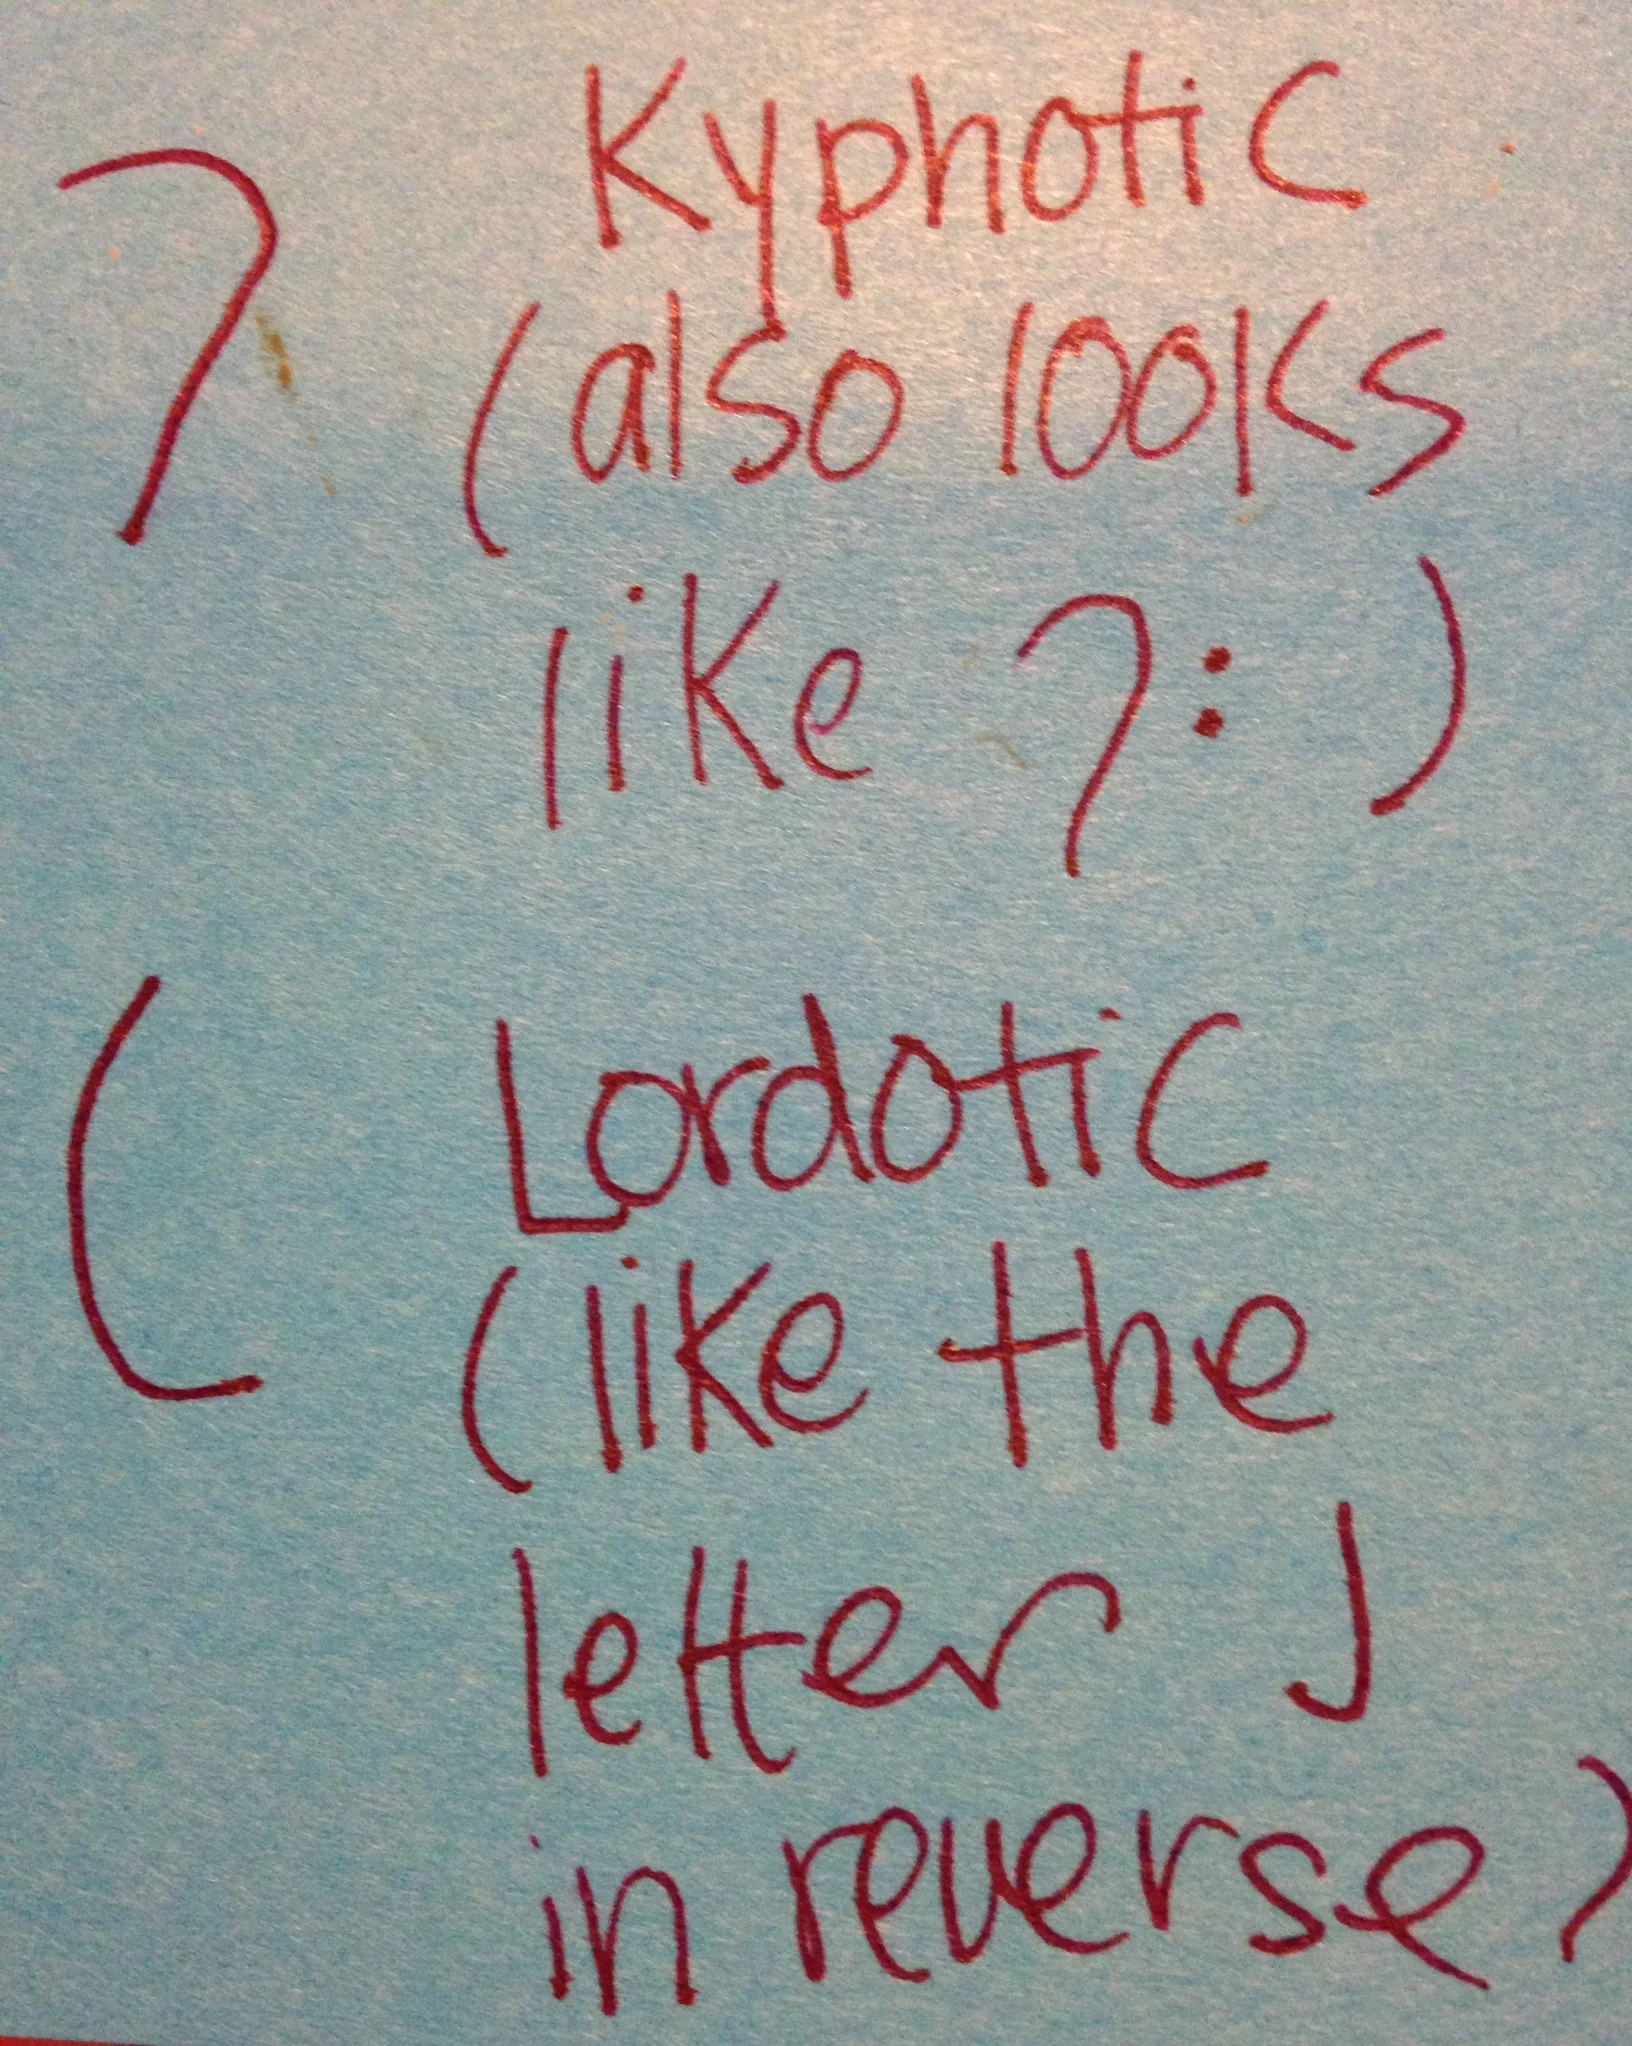 Kyphotic
(also looks
like ?: )
Lordotic
(like the
letter J
in reverse)